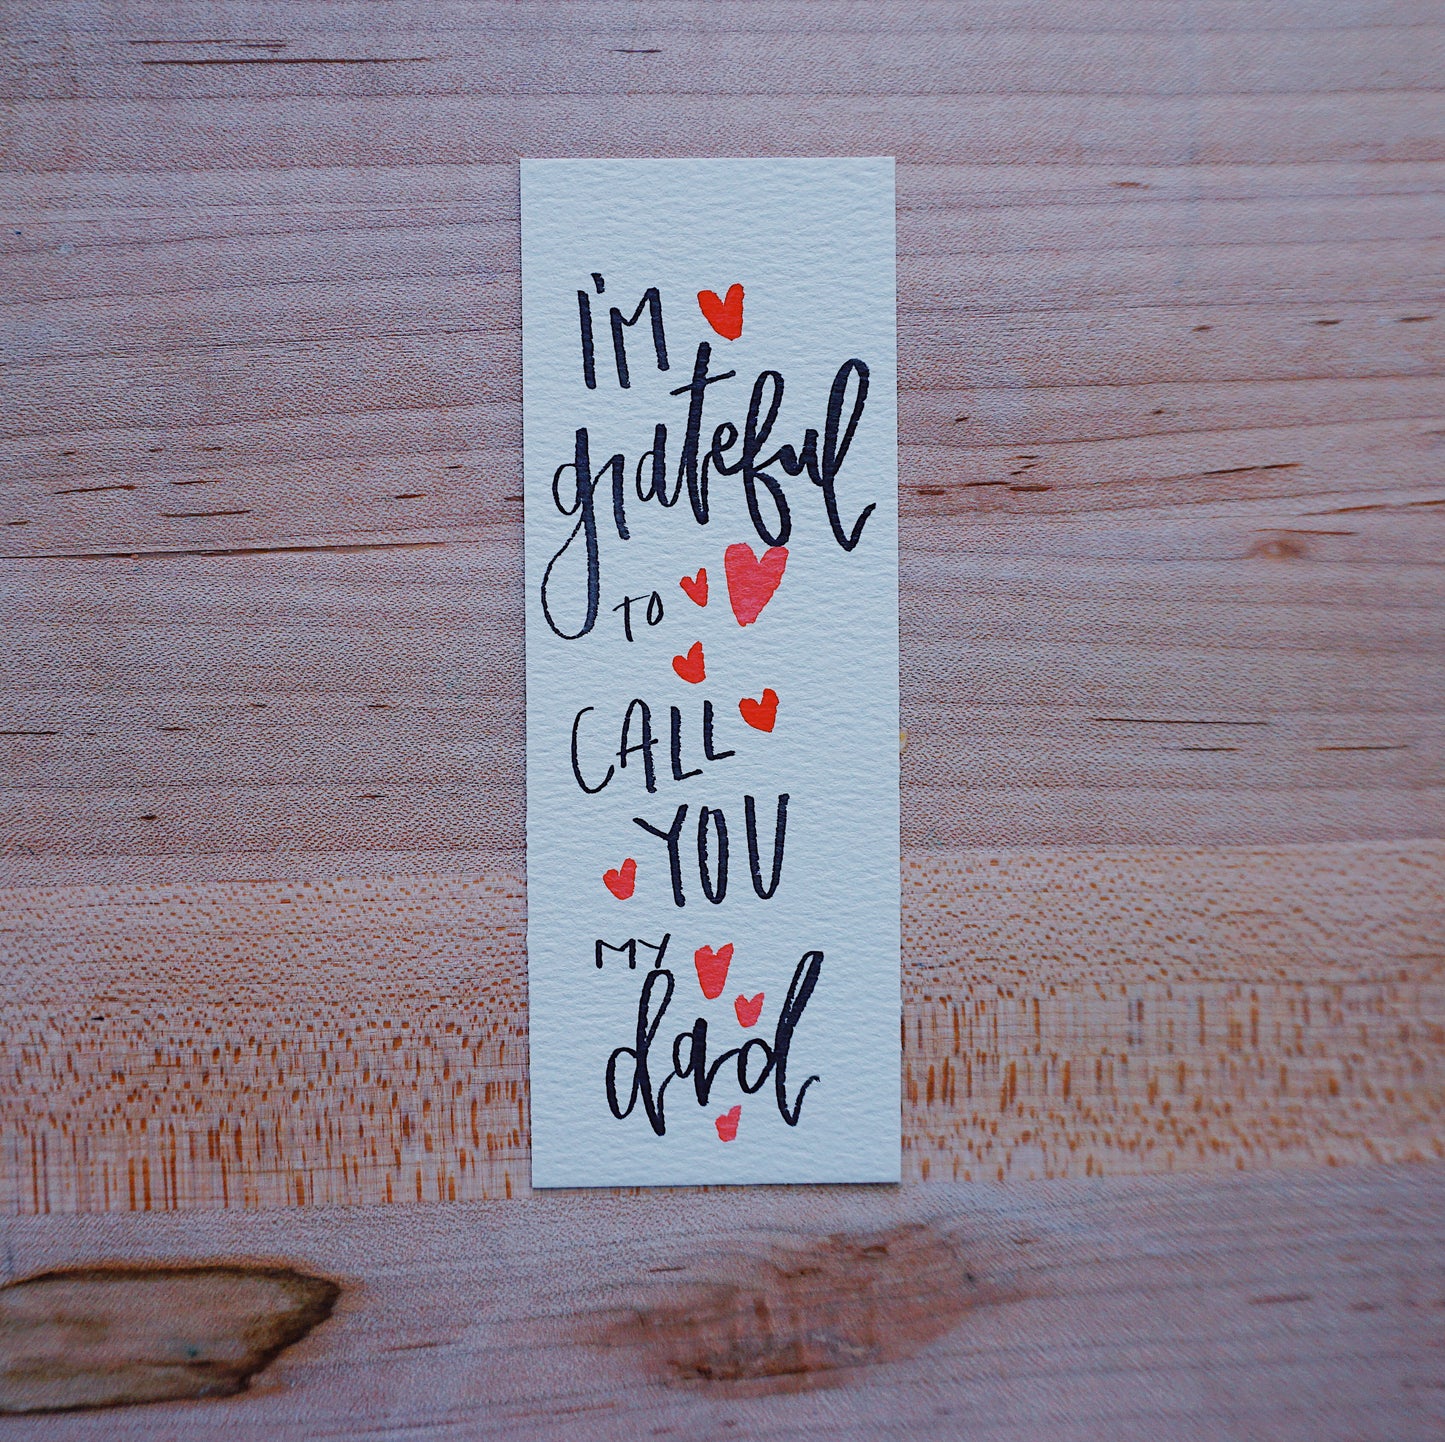 I'M
grateful
TO
CALL
YOU
MY
dad